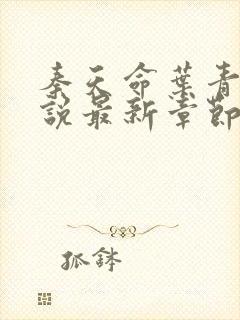 秦天命葉青
說最新章節
孤鉢